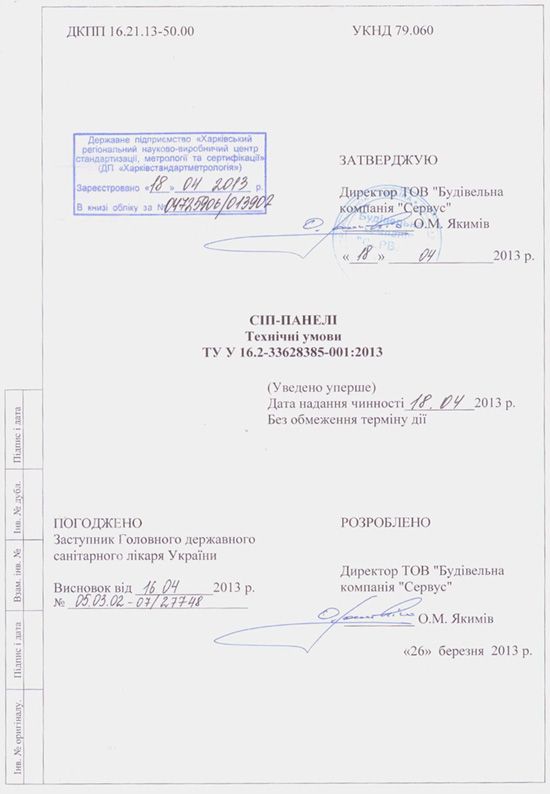 ДКПП 16.21.13-50.00
УКНД 79.060
Державне підприємство «Харківський
регіональний науково-виробничий центр
стандартизації, метрології та сертифікації»
(ДП «Харківстандартметрологія»)
Зареєстровано «18» 04 2013 р.
В книзі обліку за № 04725906/013902
ЗАТВЕРДЖУЮ
Директор ТОВ "Будівельна
компанія "Сервус"
О.М. Якимів
« 18 » 04 2013 р.
СІП-ПАНЕЛІ
Технічні умови
ТУ У 16.2-33628385-001:2013
(Уведено уперше)
Дата надання чинності 18.04 2013 р.
Без обмеження терміну дії
ПОГОДЖЕНО
Заступник Головного державного
санітарного лікаря України
Висновок від 16 04 2013 р.
№ 05.03.02-07/27748
РОЗРОБЛЕНО
Директор ТОВ "Будівельна
компанія "Сервус"
О.М. Якимів
«26» березня 2013 р.
Підпис і дата
Інв. № дубл.
Взам. інв. №
Підпис і дата
Інв. № оригіналу.